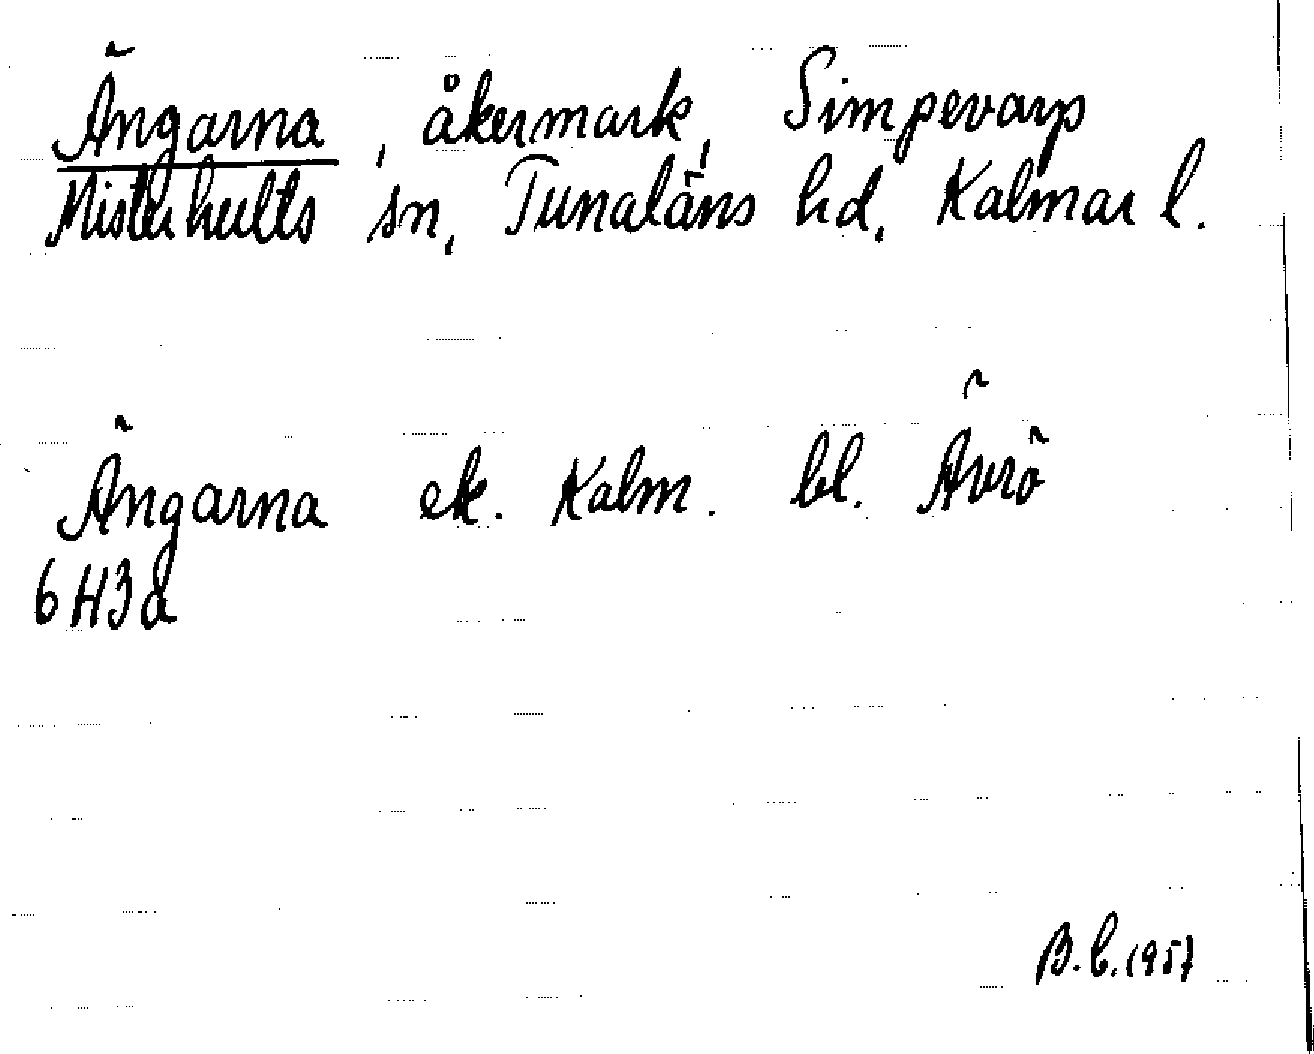 Ängarna, åkermark, Simpevarp
Misterhults sn, Tunaläns hd, Kalmar l.
Ängarna ek. Kalm. bl. Ävrö
6H3d
B.C. 1957